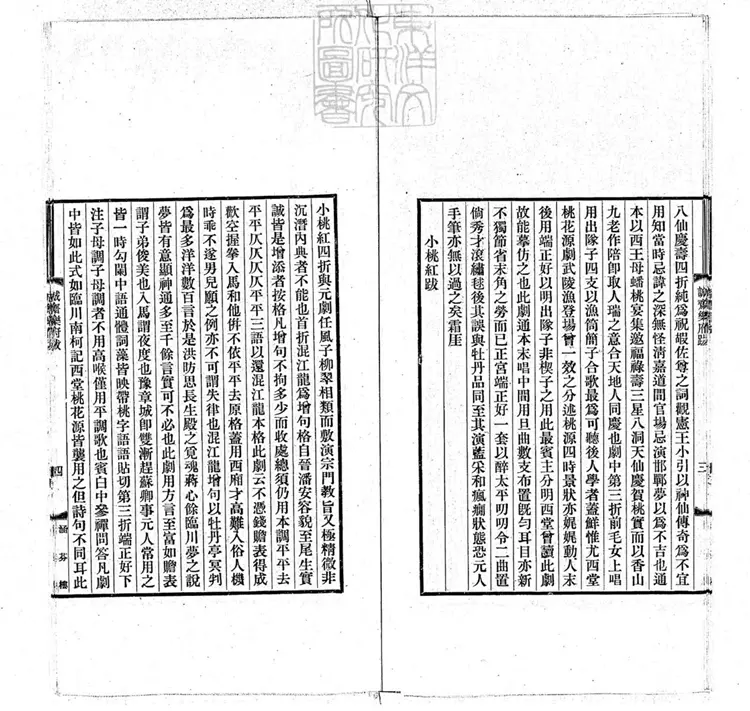 東洋文
化研究
所圖書
八仙慶壽四折純爲祝嘏佐尊之詞觀憲王小引以神仙傳奇爲不宜
用知當時忌諱之深無怪清嘉道間官場忌演邯鄲夢以爲不吉也通
本以西王母蟠桃宴集邀福祿壽三星八洞天仙慶賀桃實而以香山
九老作陪卽取人瑞之意合天地人同慶也劇中第三折前毛女上唱
用出隊子四支以漁筒簡子合歌最爲可聽後人學者蓋鮮惟尤西堂
桃花源劇武陵漁登場曾一效之分述桃源四時景狀亦娓娓動人末
後用端正好以明出隊子非楔子之用此最賓主分明西堂曾讀此劇
故能摹仿之也此劇通本末唱中間用旦曲數支布置旣勻耳目亦新
不獨節省末角之勞而已正宮端正好一套以醉太平叨叨令二曲置
倘秀才滾繡毬後其誤與牡丹品同至其演藍采和瘋癲狀態恐元人
手筆亦無以過之矣霜厓
小桃紅跋
誠齋樂府跋
三
小桃紅四折與元劇任風子柳翠相類而敷演宗門教旨又極精微非
沉潛內典者不能也首折混江龍爲增句格自晉潘安容貌至尾生實
誠皆是增添者按格凡增句不拘多少而收處總須仍用本調平平去
平平仄仄仄平平三語以還混江龍本格此劇云不憑錢贍表得成
歡空握拳入馬和他倂不依平平去原格蓋用西廂才高難入俗人機
時乖不遂男兒願之例亦不可謂失律也混江龍增句以牡丹亭冥判
爲最多洋洋數百言於是洪昉思長生殿之覓魂蔣心餘臨川夢之說
夢皆有意顯神通多至千餘言實可不必也此劇用方言至富如贍表
謂子弟俊美也入馬謂夜度也豫章城卽雙漸趕蘇卿事元人常用之
皆一時勾闌中語通體詞藻皆映帶桃字語語貼切第三折端正好下
注子母調子母調者不用高喉僅用平調歌也賓白中參禪問答凡劇
中皆如此式如臨川南柯記西堂桃花源皆襲用之但詩句不同耳此
誠齋樂府跋
四
涵芬樓